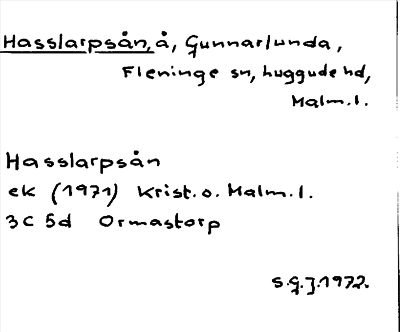 Hasslarpsån, å, Gunnarlunda,
Fleninge sn, Luggude hd,
Malm.l.
Hasslarpsån
ek (1971) Krist.o.Malm.l.
3C 5d Ormastorp
S.G.J.1972.